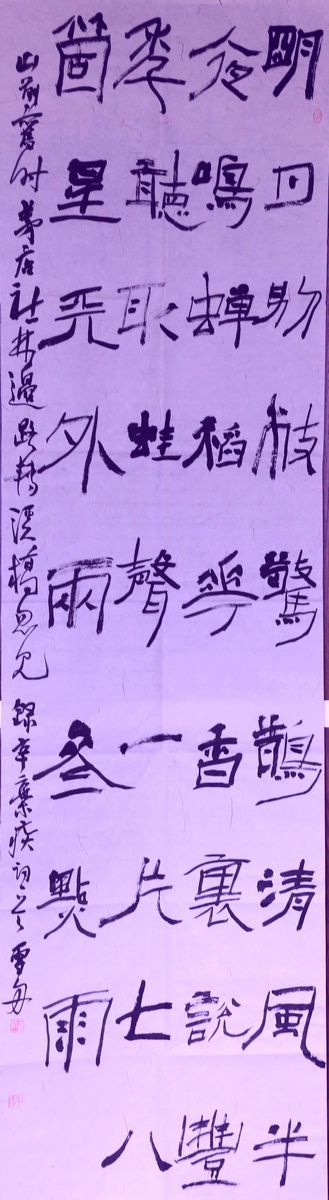 明月別枝驚鵲清風半
夜鳴蟬稻華香裏說豐
秊聽取蛙聲一片七八
箇星天外兩叁點雨
山前舊时茅店社林邊路轉溪橋忽见 錄辛棄疾詞